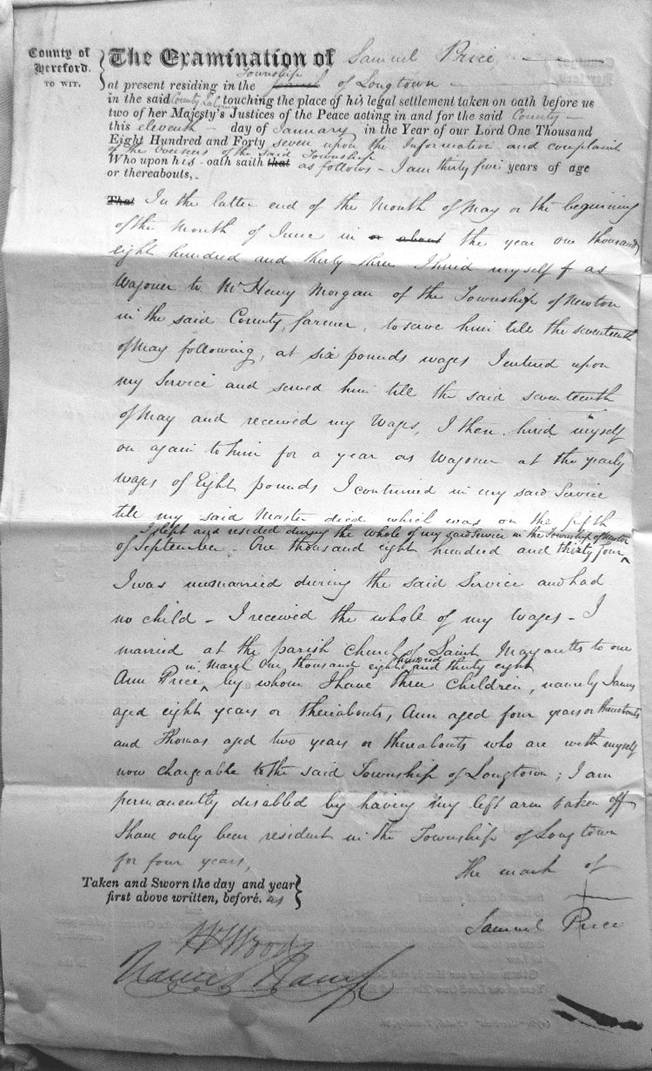 County of
Hereford.
TO WIT.
The Examination of Samuel Price
Township
at present residing in the parish of Longtown
in the said County touching the place of his legal settlement taken on oath before us
two of her Majesty's Justices of the Peace acting in and for the said County
this eleventh day of January in the Year of our Lord One Thousand
Eight Hundred and Forty seven upon the Information and complaint
of the Overseers of the said Township
Who upon his oath saith that as follows - I am thirty five years of age
or thereabouts,
That In the latter end of the Month of May or the beginning
of the Month of June in or about the year one thousand
eight hundred and thirty three I hired myself as
Wagoner to Mr Henry Morgan of the Township of Newton
in the said County, farmer, to serve him till the seventeenth
of May following, at six pounds wages I entered upon
my Service and served him till the said seventeenth
of May and received my Wages, I then hired myself
on again to him for a year as Wagoner at the yearly
wages of Eight pounds I continued in my said Service
till my said Master died which was on the fifth
I slept and resided during the whole of my said Service in the Township of Newton
of September - One thousand eight hundred and thirty four
I was unmarried during the said Service and had
no child - I received the whole of my Wages - I
married at the parish Church of Saint Margaretts to one
in March One thousand eight hundred and thirty eight
Ann Price by whom I have three Children, namely James
aged eight years or thereabouts, Ann aged four years or thereabouts
and Thomas aged two years or thereabouts who are with myself
now chargeable to the said Township of Longtown; I am
permanently disabled by having my left arm taken off
I have only been resident in the Township of Longtown
for four years,
The mark of
Taken and Sworn the day and year
first above written, before. us
Samuel Price